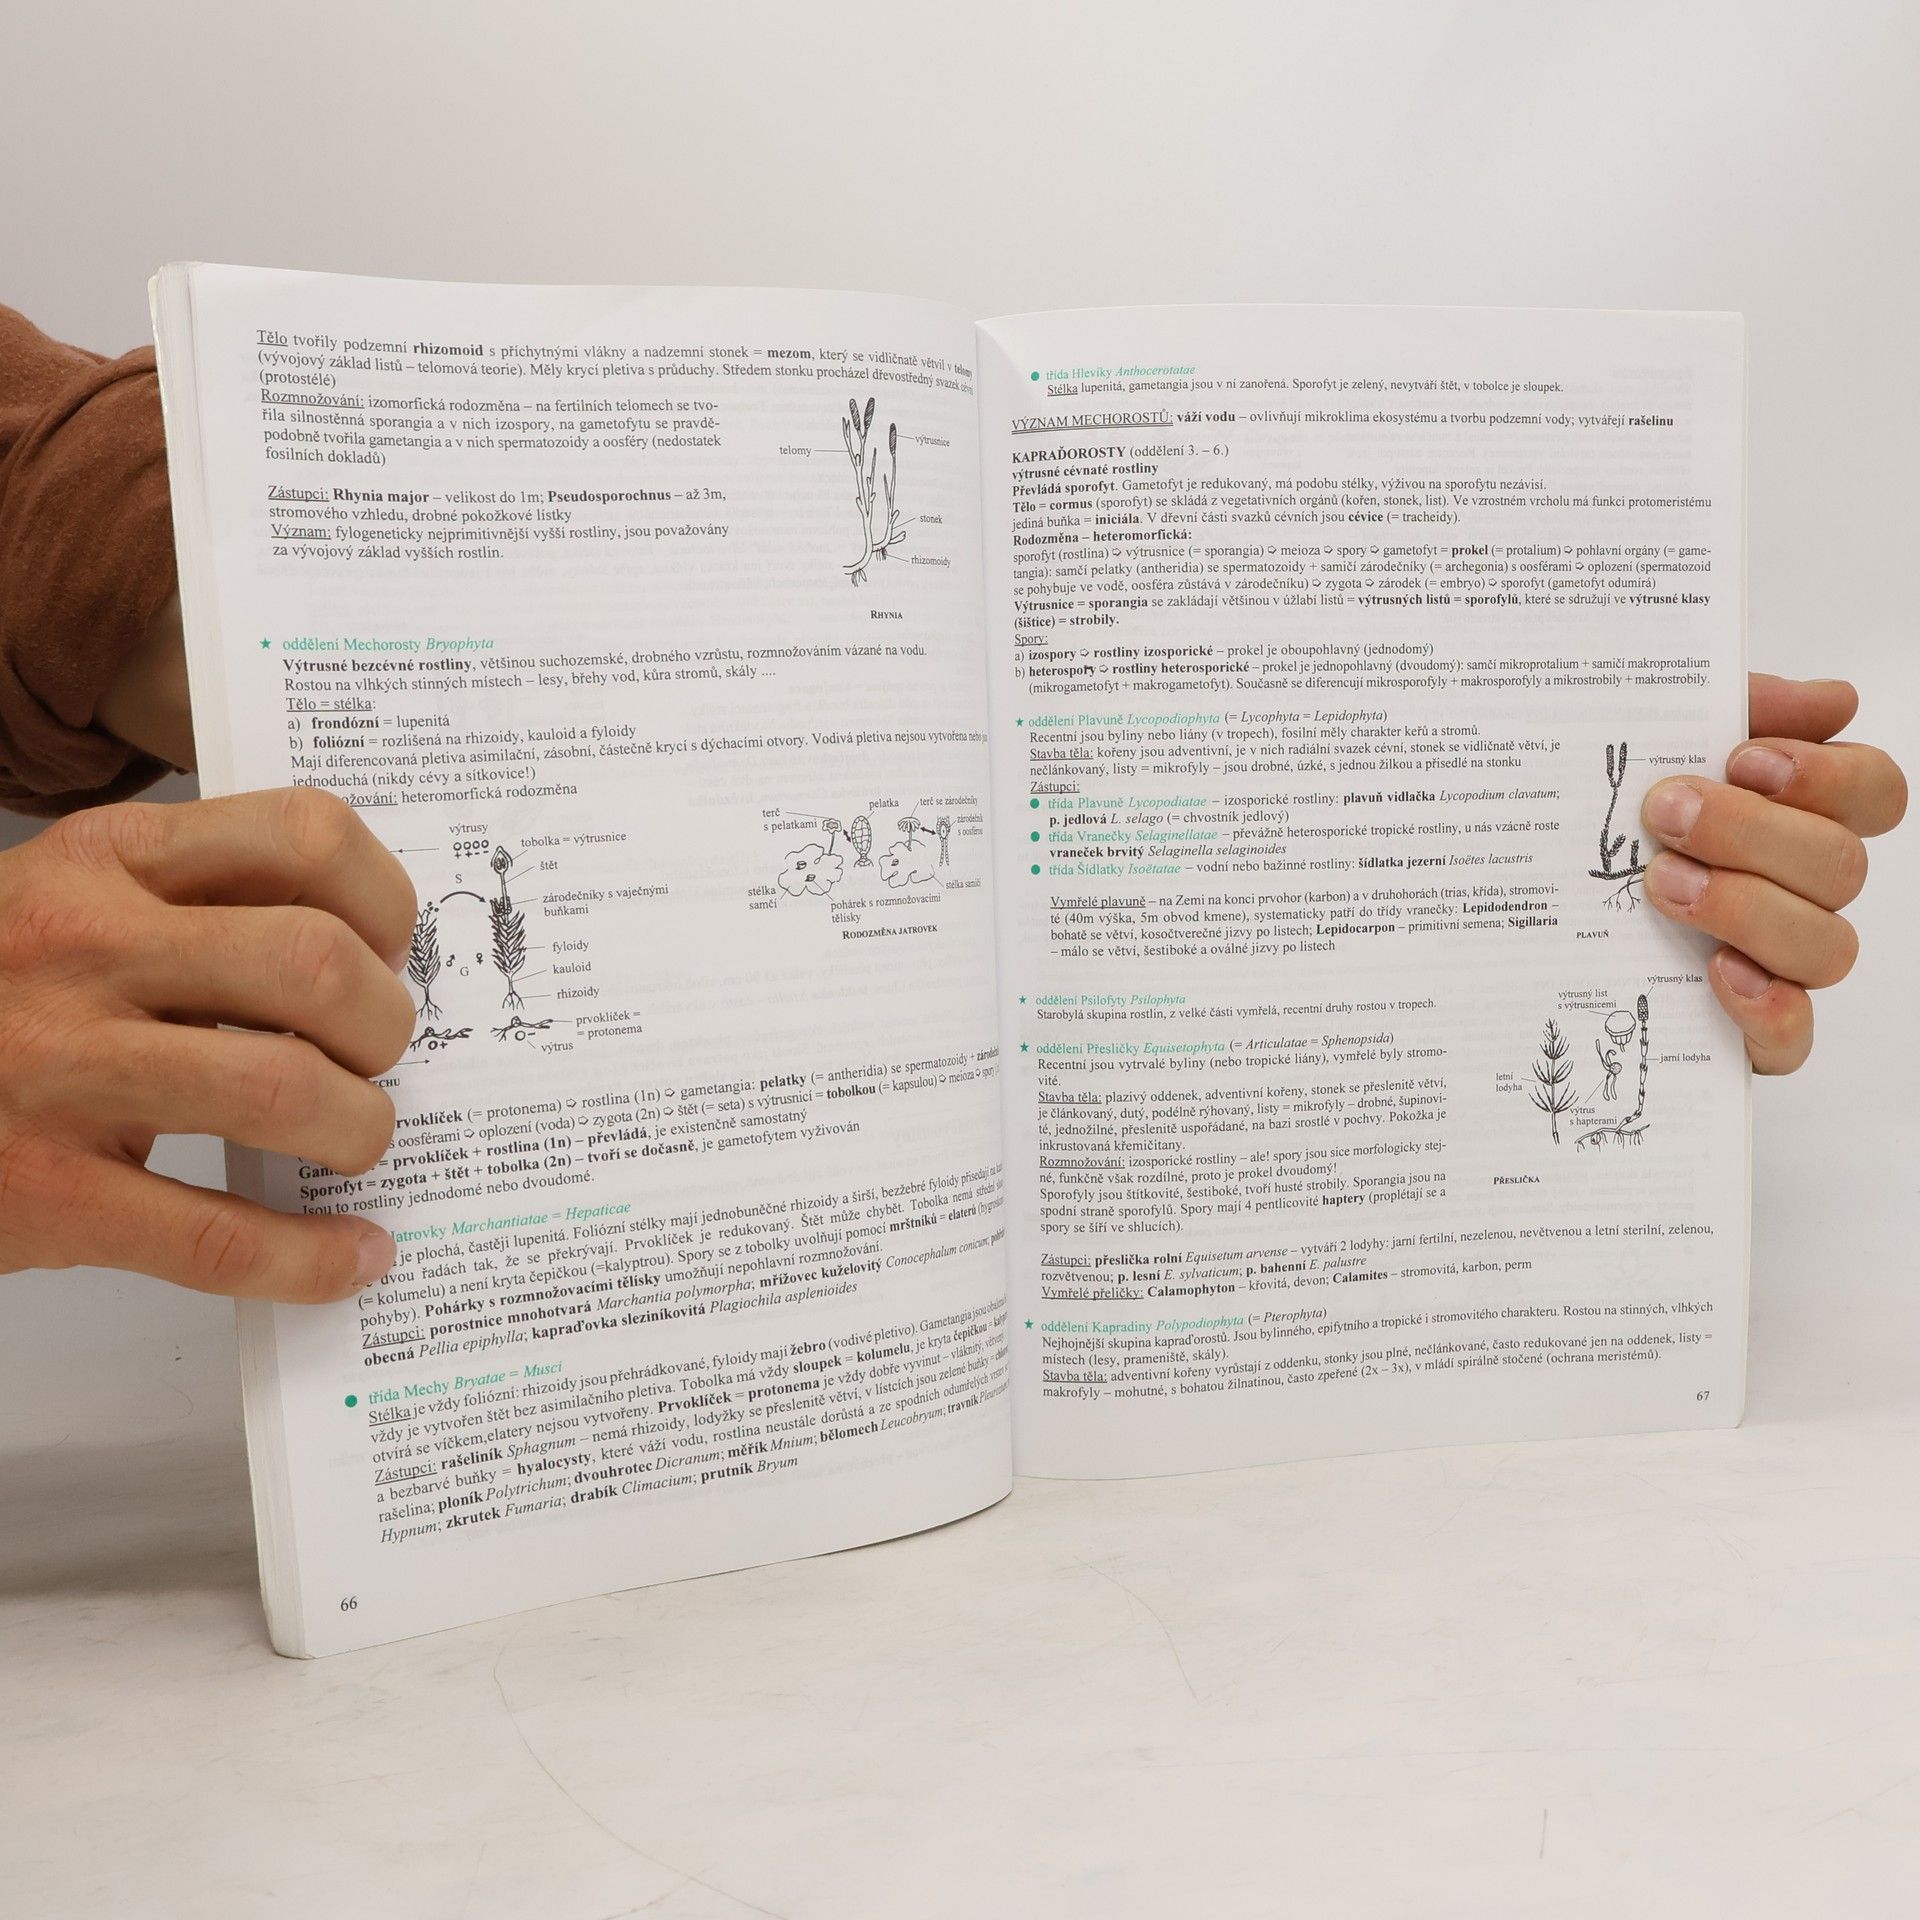 Tělo tvořily podzemní rhizomoid s příchytnými vlákny a nadzemní stonek = mezom, který se vidličnatě větvil v telomy
(vývojový základ listů – telomová teorie). Měly krycí pletiva s průduchy. Středem stonku procházel dřevostředný svazek
(protostélé)
Rozmnožování: izomorfická rodozměna – na fertilních telomech se tvo-
řila silnostěnná sporangia a v nich izospory, na gametofytu se pravdě-
podobně tvořila gametangia a v nich spermatozoidy a oosféry (nedostatek
fosilních dokladů)
Zástupci: Rhynia major – velikost do 1m; Pseudosporochnus – až 3m,
stromového vzhledu, drobné pokožkové lístky
Význam: fylogeneticky nejprimitivnější vyšší rostliny, jsou považovány
za vývojový základ vyšších rostlin.
telomy
výtrusnice
stonek
rhizomoidy
RHYNIA
★ oddělení Mechorosty Bryophyta
Výtrusné bezcévné rostliny, většinou suchozemské, drobného vzrůstu, rozmnožováním vázané na vodu.
Rostou na vlhkých stinných místech – lesy, břehy vod, kůra stromů, skály ....
Tělo = stélka:
a) frondózní = lupenitá
b) foliózní = rozlišená na rhizoidy, kauloid a fyloidy
Mají diferencovaná pletiva asimilační, zásobní, částečně krycí s dýchacími otvory. Vodivá pletiva nejsou vytvořena nebo
jednoduchá (nikdy cévy a sítkovice!)
ožování: heteromorfická rodozměna
výtrusy
tobolka = výtrusnice
štět
S
zárodečníky s vaječnými
buňkami
fyloidy
G
kauloid
rhizoidy
prvoklíček =
= protonema
výtrus
ECHU
terč
s pelatkami
pelatka
terč se zárodečníky
zárodečník
s oosférou
stélka
samčí
stélka samičí
pohárek s rozmnožovacími
tělísky
RODOZMĚNA JATROVEK
rvoklíček (= protonema) ➪ rostlina (1n) ➪ gametangia: pelatky (= antheridia) se spermatozoidy +
s oosférami ➪ oplození (voda) ➪ zygota (2n) ➪ štět (= seta) s výtrusnicí = tobolkou (= kapsulou) ➪ meioza ➪ spory
= prvoklíček + rostlina (1n) – převládá, je existenčně samostatný
Sporofyt = zygota + štět + tobolka (2n) – tvoří se dočasně, je gametofytem vyživován
Jsou to rostliny jednodomé nebo dvoudomé.
Jatrovky Marchantiatae = Hepaticae
je plochá, častěji lupenitá. Foliózní stélky mají jednobuněčné rhizoidy a širší, bezžebré fyloidy přisedají na
dvou řadách tak, že se překrývají. Prvoklíček je redukovaný. Štět může chybět. Tobolka nemá střední
(= kolumelu) a není kryta čepičkou (=kalyptrou). Spory se z tobolky uvolňují pomocí mrštníků = elaterů
pohyby). Pohárky s rozmnožovacími tělísky umožňují nepohlavní rozmnožování.
Zástupci: porostnice mnohotvará Marchantia polymorpha; mřížovec kuželovitý Conocephalum conicum;
obecná Pellia epiphylla; kapraďovka sleziníkovitá Plagiochila asplenioides
● třída Mechy Bryatae = Musci
Stélka je vždy foliózní: rhizoidy jsou přehrádkované, fyloidy mají žebro (vodivé pletivo). Gametangia jsou
vždy je vytvořen štět bez asimilačního pletiva. Tobolka má vždy sloupek = kolumelu, je kryta čepičkou =
otvírá se víčkem,elatery nejsou vytvořeny. Prvoklíček = protonema je vždy dobře vyvinut – vláknitý,
Zástupci: rašeliník Sphagnum – nemá rhizoidy, lodyžky se přeslenitě větví, v lístcích jsou zelené buňky =
a bezbarvé buňky = hyalocysty, které váží vodu, rostlina neustále dorůstá a ze spodních odumřelých
rašelina; ploník Polytrichum; dvouhrotec Dicranum; měřík Mnium; bělomech Leucobryum; travník
Hypnum; zkrutek Fumaria; drabík Climacium; prutník Bryum
66
● třída Hlevíky Anthocerotatae
Stélka lupenitá, gametangia jsou v ní zanořená. Sporofyt je zelený, nevytváří štět, v tobolce je sloupek.
VÝZNAM MECHOROSTŮ: váží vodu – ovlivňují mikroklima ekosystému a tvorbu podzemní vody; vytvářejí rašelinu
KAPRAĎOROSTY (oddělení 3. – 6.)
výtrusné cévnaté rostliny
Převládá sporofyt. Gametofyt je redukovaný, má podobu stélky, výživou na sporofytu nezávisí.
Tělo = cormus (sporofyt) se skládá z vegetativních orgánů (kořen, stonek, list). Ve vzrostném vrcholu má funkci protomeristému
jediná buňka = iniciála. V dřevní části svazků cévních jsou cévice (= tracheidy).
Rodozměna – heteromorfická:
sporofyt (rostlina) ➪ výtrusnice (= sporangia) ➪ meioza ➪ spory ➪ gametofyt = prokel (= protalium) ➪ pohlavní orgány (= game-
tangia): samčí pelatky (antheridia) se spermatozoidy + samičí zárodečníky (= archegonia) s oosférami ➪ oplození (spermatozoid
se pohybuje ve vodě, oosféra zůstává v zárodečníku) ➪ zygota ➪ zárodek (= embryo) ➪ sporofyt (gametofyt odumírá)
Výtrusnice = sporangia se zakládají většinou v úžlabí listů = výtrusných listů = sporofylů, které se sdružují ve výtrusné klasy
(šištice) = strobily.
Spory:
a) izospory ➪ rostliny izosporické – prokel je oboupohlavný (jednodomý)
b) heterospory ➪ rostliny heterosporické – prokel je jednopohlavný (dvoudomý): samčí mikroprotalium + samičí makroprotalium
(mikrogametofyt + makrogametofyt). Současně se diferencují mikrosporofyly + makrosporofyly a mikrostrobily + makrostrobily.
★ oddělení Plavuně Lycopodiophyta (= Lycophyta = Lepidophyta)
Recentní jsou byliny nebo liány (v tropech), fosilní měly charakter keřů a stromů.
Stavba těla: kořeny jsou adventivní, je v nich radiální svazek cévní, stonek se vidličnatě větví, je
nečlánkovaný, listy = mikrofyly – jsou drobné, úzké, s jednou žilkou a přisedlé na stonku
Zástupci:
● třída Plavuně Lycopodiatae – izosporické rostliny: plavuň vidlačka Lycopodium clavatum;
p. jedlová L. selago (= chvostník jedlový)
● třída Vranečky Selaginellatae – převážně heterosporické tropické rostliny, u nás vzácně roste
vraneček brvitý Selaginella selaginoides
● třída Šídlatky Isoëtatae – vodní nebo bažinné rostliny: šídlatka jezerní Isoëtes lacustris
Vymřelé plavuně – na Zemi na konci prvohor (karbon) a v druhohorách (trias, křída), stromovi-
té (40m výška, 5m obvod kmene), systematicky patří do třídy vranečky: Lepidodendron –
bohatě se větví, kosočtverečné jizvy po listech; Lepidocarpon – primitivní semena; Sigillaria
– málo se větví, šestiboké a oválné jizvy po listech
výtrusný klas
PLAVUŇ
★ oddělení Psilofyty Psilophyta
Starobylá skupina rostlin, z velké části vymřelá, recentní druhy rostou v tropech.
★ oddělení Přesličky Equisetophyta (= Articulatae = Sphenopsida)
Recentní jsou vytrvalé byliny (nebo tropické liány), vymřelé byly stromo-
vité.
Stavba těla: plazivý oddenek, adventivní kořeny, stonek se přeslenitě větví,
je článkovaný, dutý, podélně rýhovaný, listy = mikrofyly – drobné, šupinovi-
té, jednožilné, přeslenitě uspořádané, na bazi srostlé v pochvy. Pokožka je
inkrustovaná křemičitany.
Rozmnožování: izosporické rostliny – ale! spory jsou sice morfologicky stej-
né, funkčně však rozdílné, proto je prokel dvoudomý!
Sporofyly jsou štítkovité, šestiboké, tvoří husté strobily. Sporangia jsou na
spodní straně sporofylů. Spory mají 4 pentlicovité haptery (proplétají se a
spory se šíří ve shlucích).
výtrusný klas
výtrusný list
s výtrusnicemi
letní
lodyha
jarní lodyha
výtrus
s hapterami
PŘESLIČKA
Zástupci: přeslička rolní Equisetum arvense – vytváří 2 lodyhy: jarní fertilní, nezelenou, nevětvenou a letní sterilní, zelenou,
rozvětvenou; p. lesní E. sylvaticum; p. bahenní E. palustre
Vymřelé přeličky: Calamophyton – křovitá, devon; Calamites – stromovitá, karbon, perm
★ oddělení Kapradiny Polypodiophyta (= Pterophyta)
Nejhojnější skupina kapraďorostů. Jsou bylinného, epifytního a tropické i stromovitého charakteru. Rostou na stinných, vlhkých
místech (lesy, prameniště, skály).
Stavba těla: adventivní kořeny vyrůstají z oddenku, stonky jsou plné, nečlánkované, často redukované jen na oddenek, listy =
makrofyly – mohutné, s bohatou žilnatinou, často zpeřené (2x – 3x), v mládí spirálně stočené (ochrana meristémů).
67